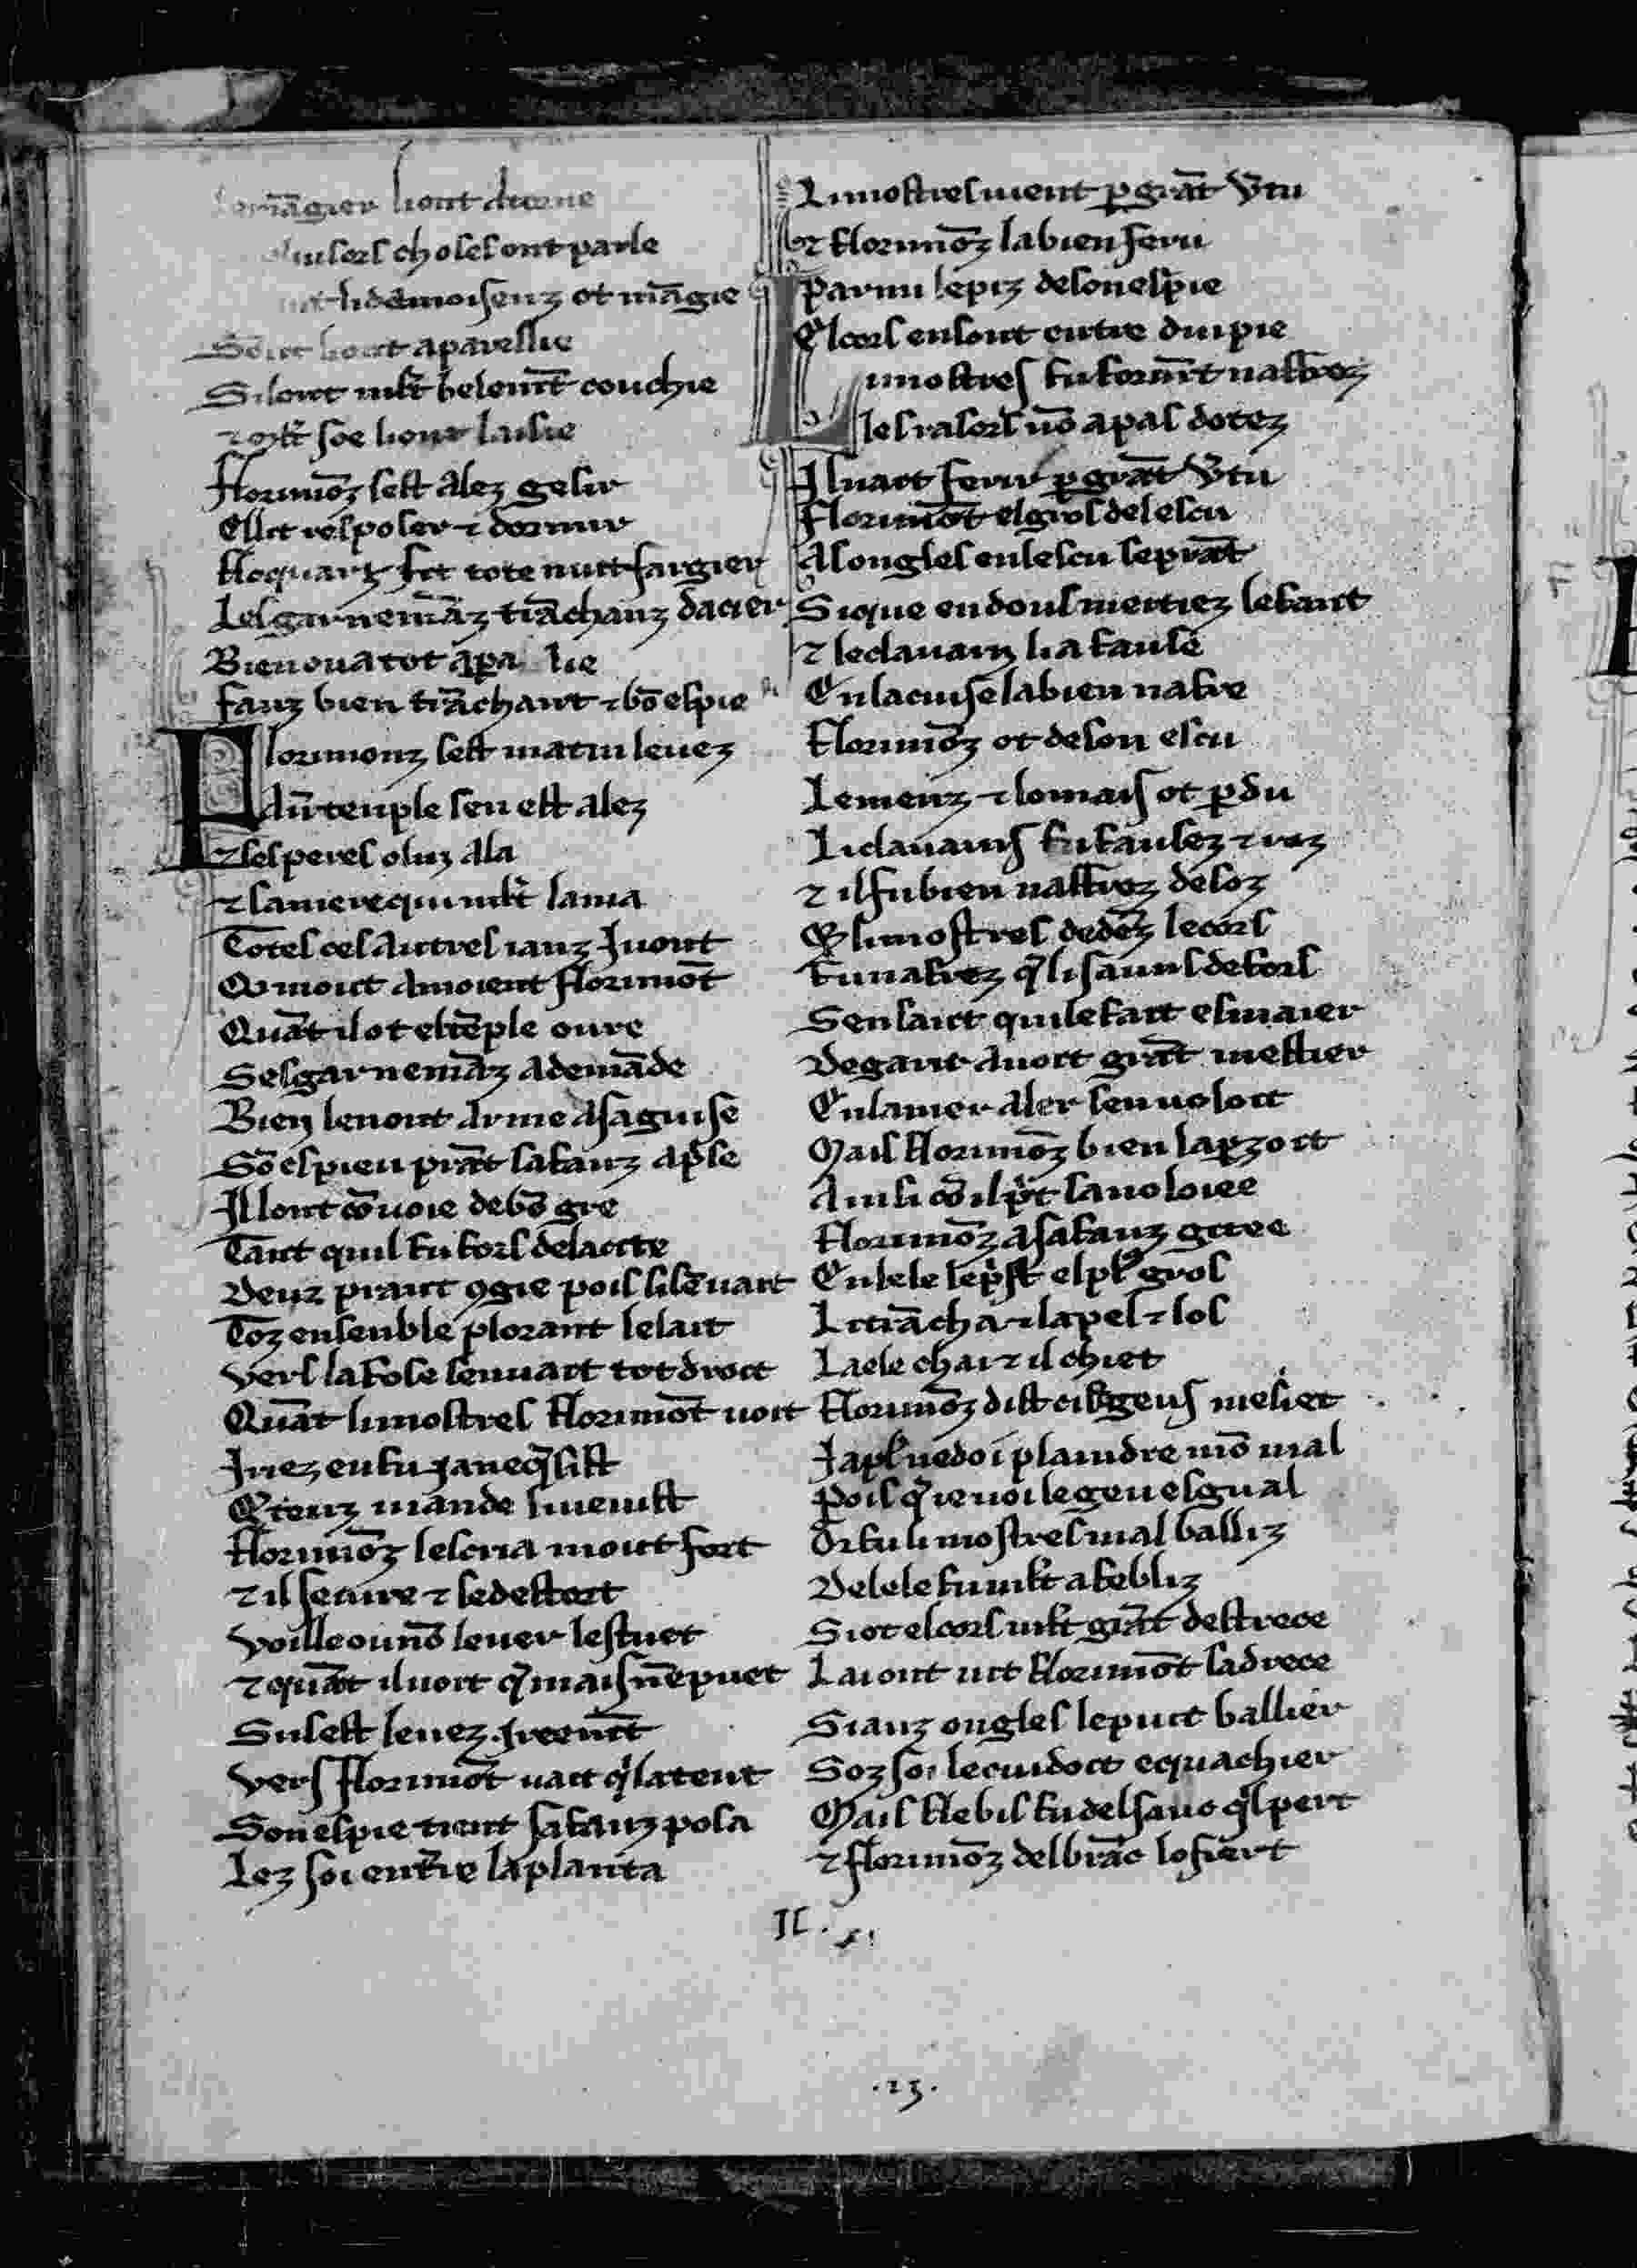 mãgier liont done
choses ont parle
li damoisenz ot mãgie
liont apareillie
Si lont mlt belemt couchie
⁊ soe liont laissie
Florimõz sest alez gesir
Ellit resposer ⁊ dormir
Floquarz fit tote nuit fargier
Les garnemãz trãchanz dacier
Bien ou a tot apa lie
fauz bien trãchant ⁊ bõ espie
Florimonz sest matin leuez
temple sen est alez
⁊ ses peres o luj ala
⁊ sa mere qui mlt lama
Totes ces autres ianz j uont
Q moult amoient florimõt
Quãt il ot el tẽple oure
Ses garnemãz a demãde
Bien lenont arme a sa guise
Sõ espieu prãt sa fauz a pse
Il lont cõuoie de bõ gre
Tant quil fu fors de la cite
Deuz prant ꝯgie pois si sẽ uait
Toz ensenble plorant se lait
Vers la fose sen uait tot droit
Quãt li mostres florimõt uoit
Iriez en fu ia ne qsist
Q tenz mande si uenist
Florimõz lescria moult fort
⁊ il setire ⁊ se destort
Voille ou nõ leuer lestuet
⁊ quãt il uoit q mais nẽ puet
Sus est leuez ireemt
Vers florimõt uait q latent
Son espie tient sa fauz posa
Lez soi en tre la planta
Li mostres uient p grãt vtu
⁊ florimõz la bien feru
Parmi le piz de son espie
El cors en sont entre dui pie
Li mostres fu formt naffrez
Ses rasors nõ a pas dotez
Il uait ferir p grãt vtu
Florimõt el gros del escu
A s ongles en lescu se prãt
Si que en dous meitiez le fant
⁊ le clauain li a fause
En la cuise la bien nafre
Florimõz ot de son escu
Le menz ⁊ lo mais ot pdu
Li clauains fu fausez ⁊ roz
⁊ il fu bien naffrez desoz
Q li mostres dedẽz le cors
Fu nafrez q li sauns de fors
Sen saut qui le fait esmaier
De garir auoit grãt mestier
En la mer aler sen uoloit
Mais florimõz bien lapzoit
Ainsi cõ il pt sa uoloiee
Florimõz a sa fauz gitee
En lele le pst el pl gros
Li trãcha ⁊ la pel ⁊ los
La ele chai ⁊ il chiet
Florimõz dist cib geus me siet
Ja pl ne doi plaindre mõ mal
Pois q ie uoi le geu esgual
Or fu li mostres mal balliz
De lele fu mlt afebliz
Si ot el cors mlt grãt destrece
La iont uit florimõt sadrece
Si auz ongles le puit ballier
Soz soi le cuidoit equachier
Mais flebis fu del sanc ql pert
⁊ florimõz del brãc lo fiert
II.
.23.